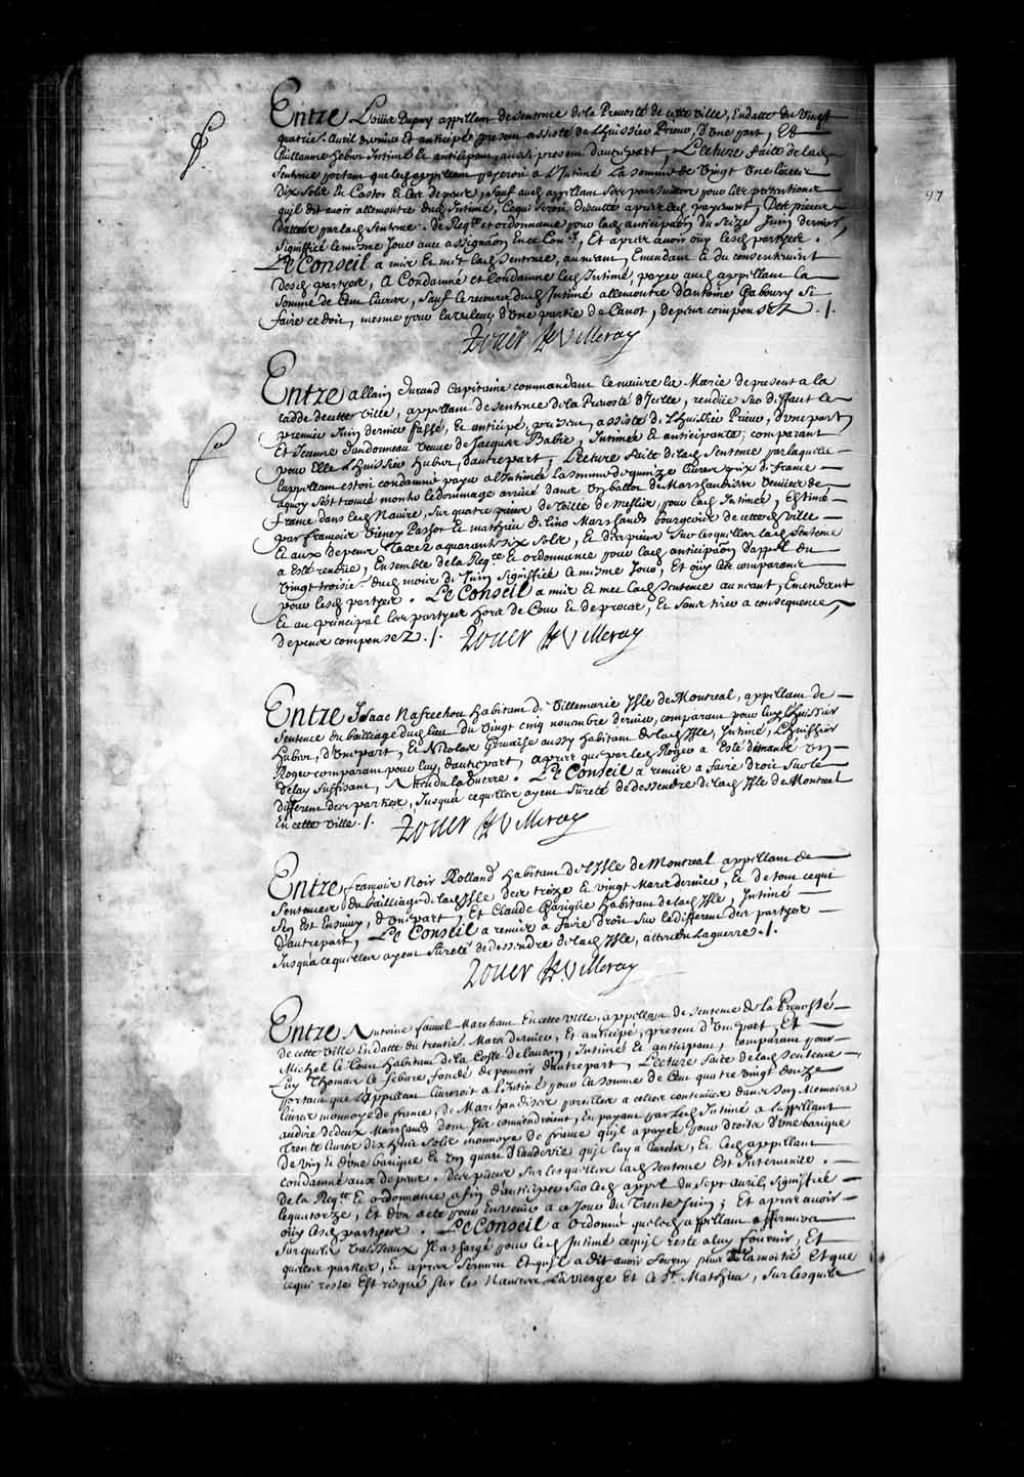 Entre Louis Dupuy appellant de sentence de la Prevosté de cette ville, En datte du Vingt
quatrie. Avril dernier Et anticipé present assisté de l'huissier Prieur, d'Une part, Et
Guillaume Intimé Et anticipant, aussi present d'autre part, Lecture faite de lad.
Sentence portant que led. appellant payeroit a l'Intimé La somme de Vingt Une livres
Dix Sols En Castor Et Les depens, sauf aud. appellant ses poursuittes pour les pretentions
qu'il dit avoir allencontre dud. Intimé, Ce qui seroit discutté apres led. payement, Des pieces
dattées par lad. Sentence. de Reqte. et ordonnance pour lad. anticipation du Seize Juin dernier,
signiffié le mesme Jour avec assignaon En ce Conl., Et apres avoir oüy lesd. partyes.
Le Conseil a mis Et met lad. Sentence, au neant, Emendant Et du consentement
desd. partyes, A Condamné et Condamne led. Intimé, payer aud. appellant la
somme de Cent livres, sauf le recours dud. Intimé allencontre d'antoine Gaboury Si
faire ce doit, mesme pour la valeur d'Une partie de Canot, depens compensez ./.
Rouer de Villeray
Entre allain durand Capitaine commandant Le navire la Marie de present a la
radde de cette Ville, appellant de sentence de la Prevosté d'Icelle, rendüe par deffaut le
premier Juin dernier passé, Et anticipé, present, assisté de L'huissier Prieur, d'une part
Et Jeanne Dandonneau veuve de Jacques Babie, Intimée Et anticipante, comparant
pour Elle L'huissier Hubert, d'autre part, Lecture faite de lad. Sentence par laquelle
l'appellant estoit condamné payer a l'Intimée la somme de quinze livres prix de france
a quoy s'est trouvé monter le dommage arrivé dans Un ballot de Marchandises Venües de
france dans led. Navire, sur quatre pieces de Toille de meslis, pour lad. Intimée, Estimé
par francois Vienay Pachot Et mathieu de lino Marchands bourgeois de cette d. Ville
Et aux depens Taxez a quarante six sols, Et des pieces sur lesquelles lad. sentence
a Esté rendüe, Ensemble de la Reqte. Et ordonnance pour lad. anticipaon d'appel du
Vingt troisie. dud. mois de Juin signiffiée Le mesme Jour, Et oüy Les comparans
pour lesd. partyes. Le Conseil a mis Et met lad. Sentence au neant, Emendant
Et au principal Les partyes hors de Cour Et de procez, Et sans tirer a consequence,
depens compensez ./. Rouer de Villeray
Entre Isaac Nafrechou habitant de Villemarie Isle de Montreal, appellant de
sentence du bailliage dud. lieu du Vingt cinq novembre dernier, comparant pour luy l'huissier
Hubert, d'Une part, Et Nicolas Gervaise aussy habitant de lad. Isle, Intimé, L'huissier
Roger comparant pour luy d'autre part, apres que par led. Roger a Esté demandé Un
delay suffisant, Attendu la Guerre. Le Conseil a remis a faire droit sur le
different des parties, Jusqu'a ce qu'elles ayent sureté de dessendre de lad. Isle de Montreal
En cette Ville ./. Rouer de Villeray
Entre francois Noir Rolland habitant de l'Isle de Montreal appellant de
Sentences du bailliage de lad. Isle des treize Et vingt Mars dernier, Et de tout ce qui
s'en Est Ensuivy, d'Une part, Et Claude Garigüe habitant de lad. Isle, Intimé
d'autre part, Le Conseil a remis a faire droit sur le different des partyes
Jusqu'a ce qu'elles ayent sureté de dessendre de lad. Isle, attendu la guerre ./.
Rouer de Villeray
Entre Antoine Marchant En cette Ville, appellant de sentence de la Prevosté
de cette Ville En datte du trentie. Mars dernier, Et anticipé, present d'Une part, Et
Michel Le Cour habitant de la Coste de lauson, Intimé Et anticipant, comparant pour
luy Thomas Le febure fondé de pouvoir d'autre part, Lecture faite de lad. Sentence,
portant que l'appellant livreroit a l'Intimé pour La somme de Cent quatre vingt douze
livres monnoye de france, de Marchandises pareilles a celles contenües dans son Memoire
au dire de deux Marchands dont Ils conviendront, En payant par led. Intimé a l'appellant
Trente livres dix huit sols monnoye de france qu'il a payez pour droits d'Une barique
de vin Et d'Une barique Et Un quart d'Eaudevie qu'il luy a livrées, Et led. appellant
condamné aux depens. des pieces sur lesquelles lad. Sentence Est Intervenüe.
de la Reqte. Et ordonnance afin d'anticiper sur led. appel du sept avril, signiffié
le quatorze, Et d'Un acte pour En venir a ce Jour du Trente Juin; Et apres avoir
oüy lesd. partyes. Le Conseil a ordonné que led. appellant affirmera
sur quels vaisseaux Il a chargé pour led. Intimé ce qu'il reste a luy fournir, Et
qu'elles parties, Et apres serment Et qu'il a dit avoir pour la moitié Et que
ce qui reste Est risqué sur les Navires La vierge Et Le St. Mathieu, sur lesquels
97